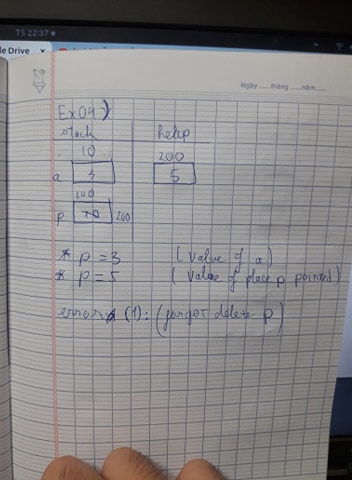 TS 22:37
le Drive ×
Ngày ......tháng ......năm......
Ex04)
stack heap
. 10 200
a 3 5
100
p 10 200
* p = 3 (value of a)
* p = 5 (value of place p pointed)
error (1): (forgot delete p)